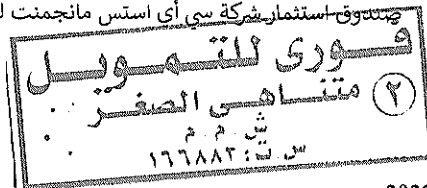 صندوق استثمار شركة سي أي استس مانجمنت
فورى للتمويل
متناهى الصغر
٢
ش . م . م
س . ت : ١٦٦٨٨٢